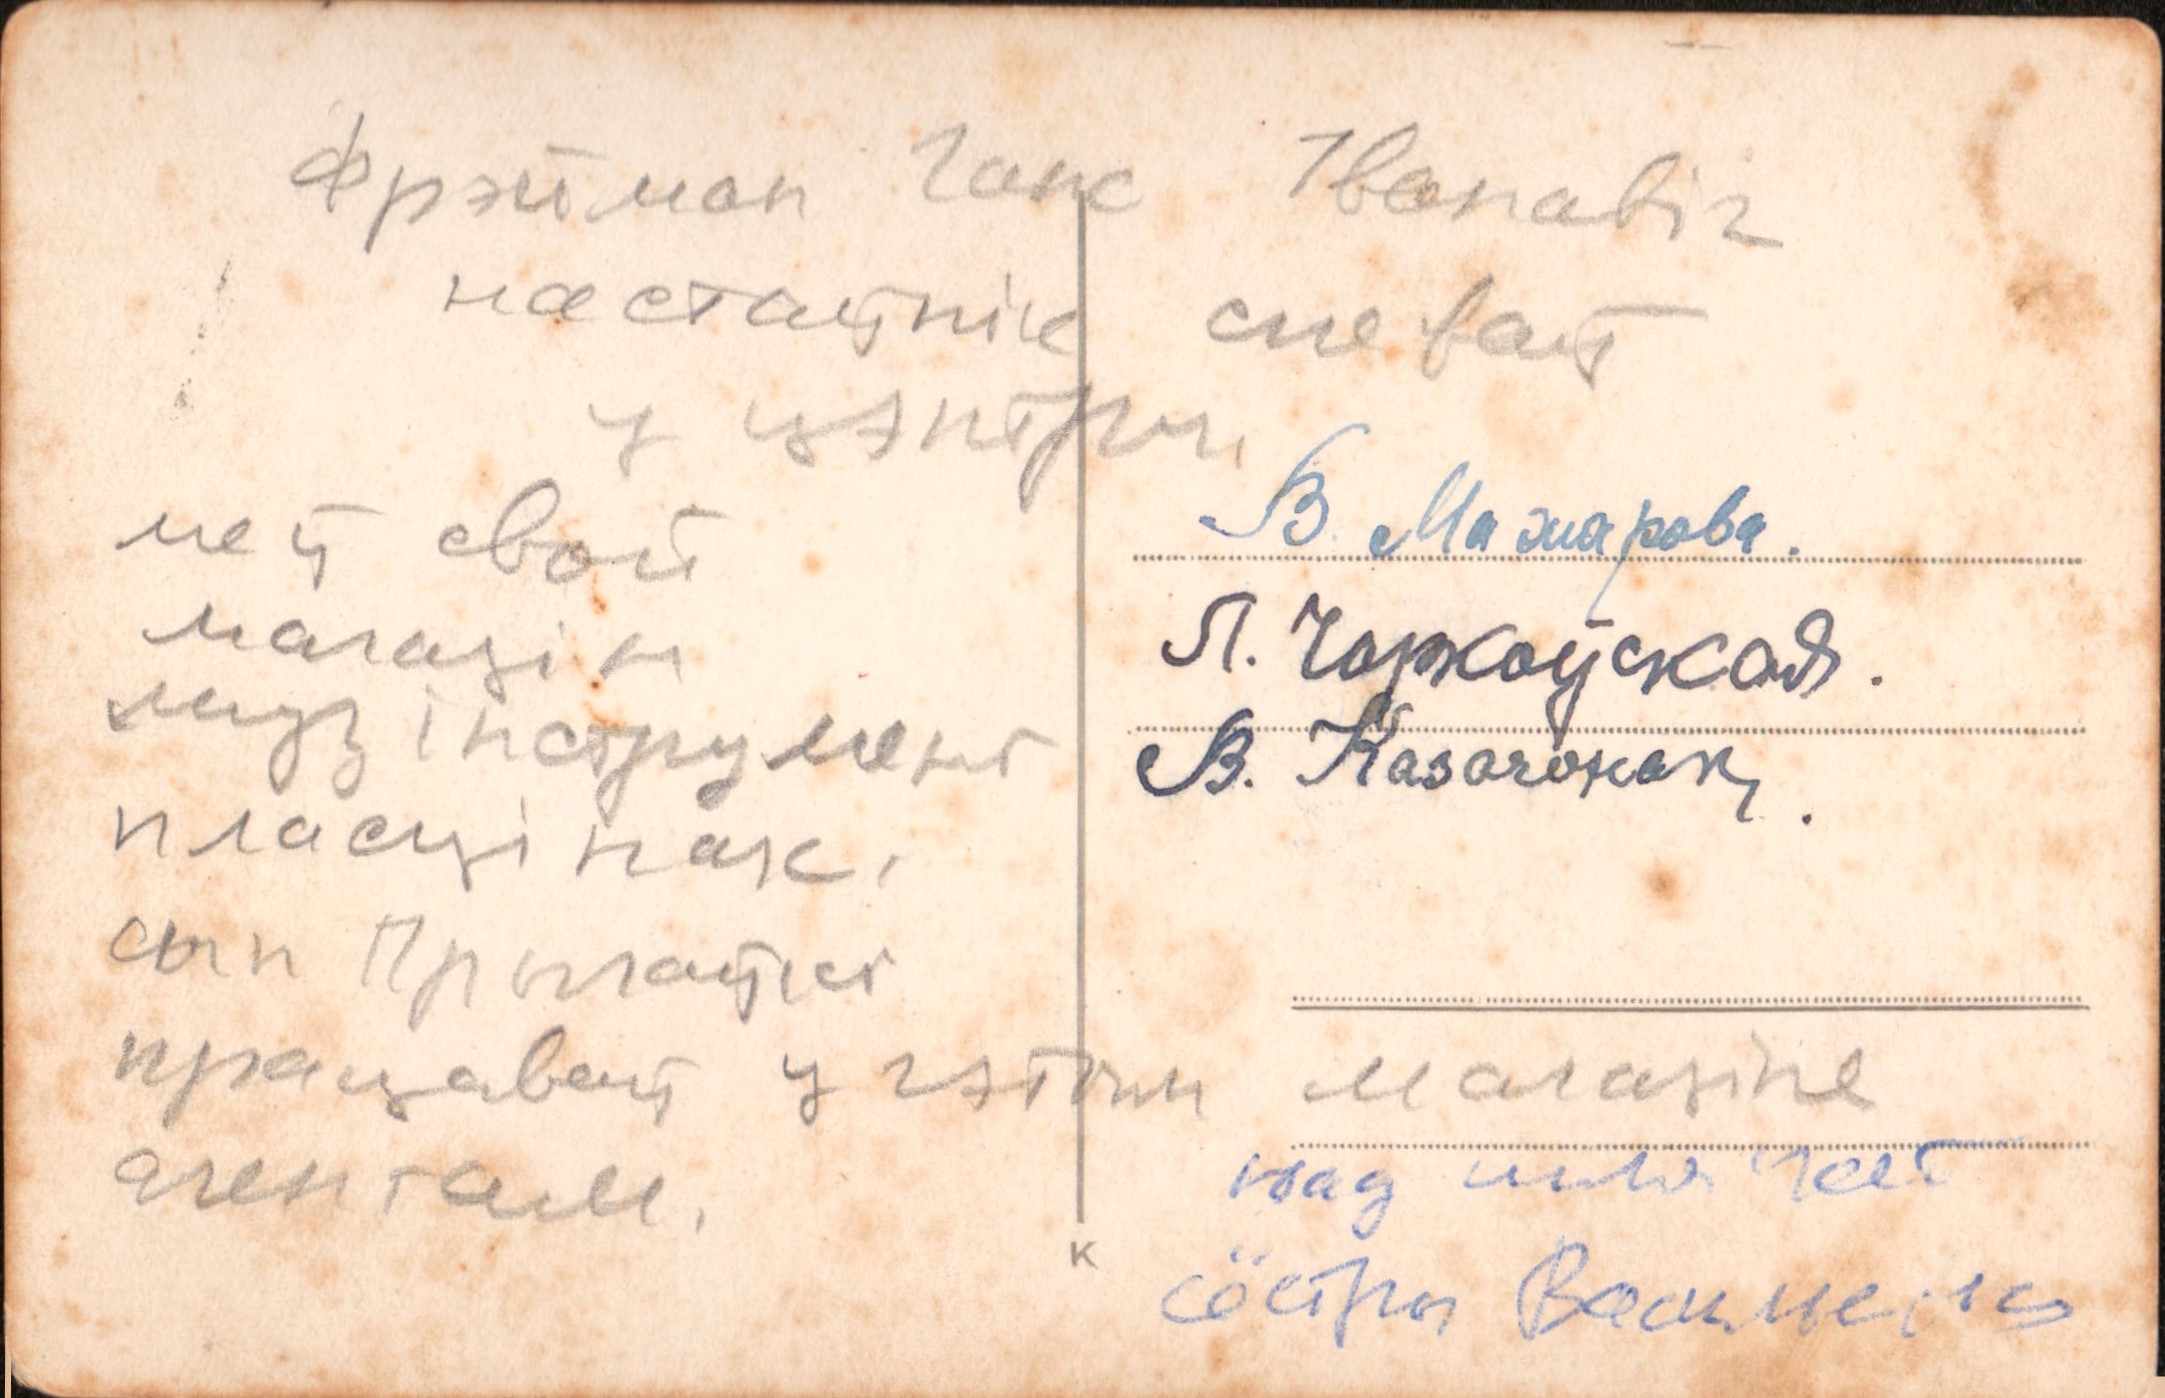 Фрэйман Ганс Іванавіч
настаўнік спеваў
у цэнтры,
меў свой
магазін
муз інструмент
пласцінак,
сын Прыгаўкі
працаваў у гэтым магазіне
агентам.
В. Мажарова.
Л. Чаркоўская.
В. Казачонак.
над
сёстры
К